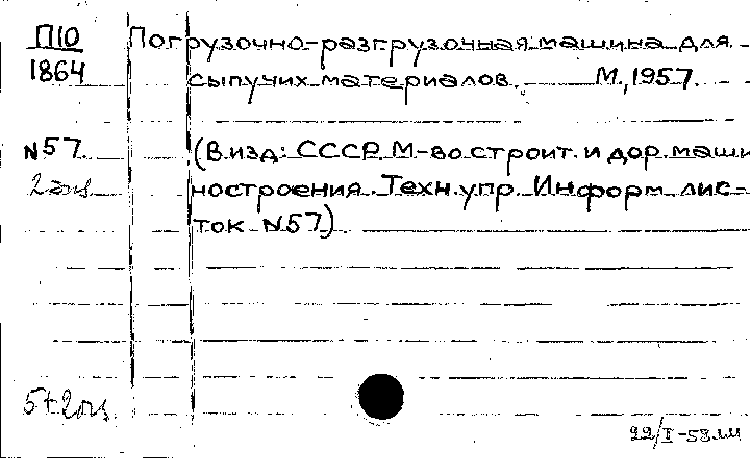 П10
1864
Погрузочно-разгрузочная машина для
сыпучих материалов. М., 1957.
N57
2 экз
(В изд: СССР. М-во строит. и дор. маши
ностроения. Техн. упр. Информ. лис-
ток N57)
22/I-58